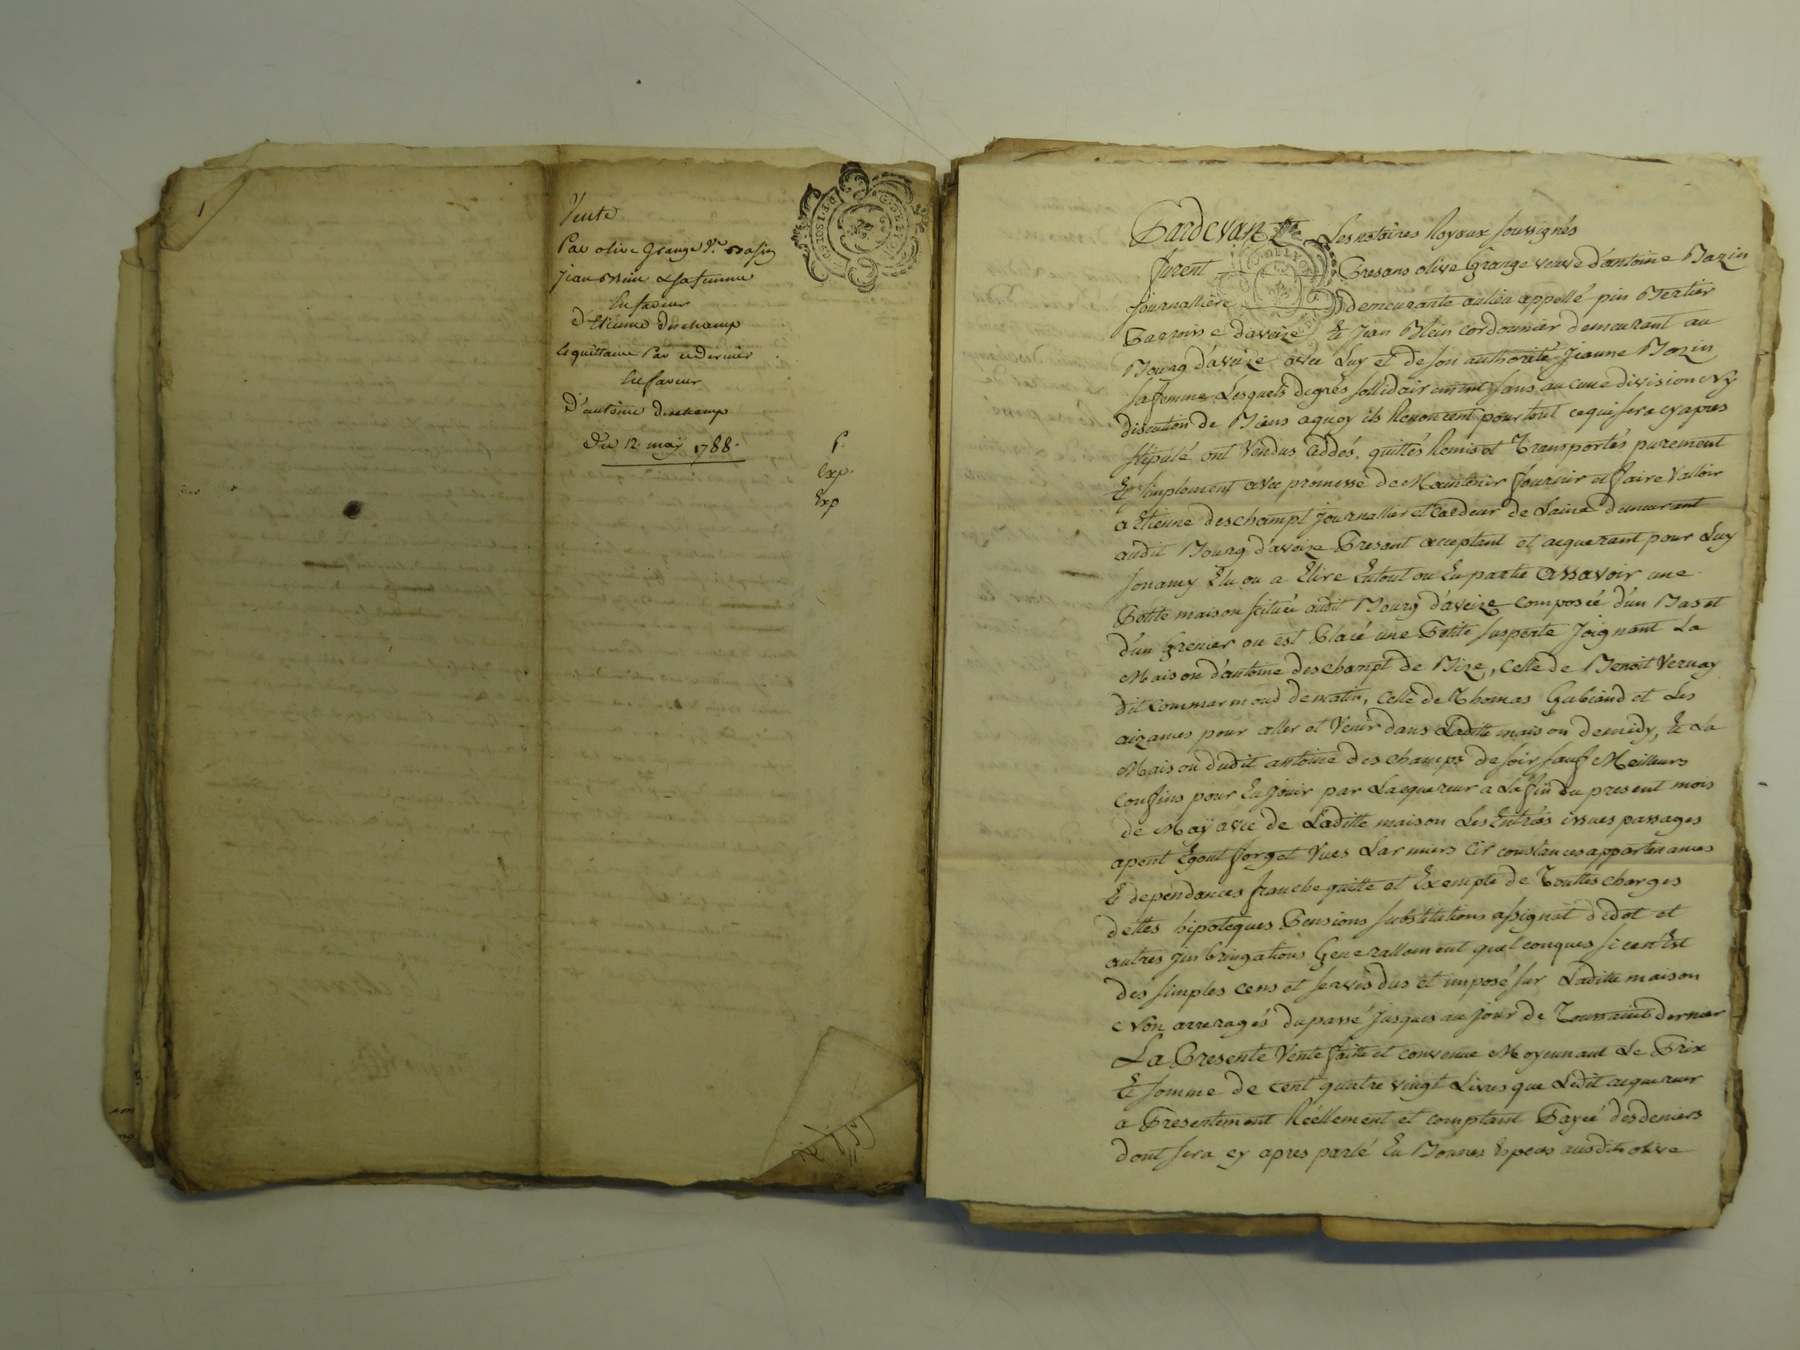 1
Vente
Par olive Grange Ve Basin
jean Blein & sa femme
En faveur
d'Etienne deschamp
Et quittance Par ce dernier
En faveur
D'antoine deschamp
Du 12. may 1788.
P.
Exp.
Exp
Pardevant Les notaires Royaux soussignés
furent Presans olive Grange veuve d'antoine Bazin
journalliere demeurante au lieu appellé pin Bertier
Parroisse d'aveize Et Jean Blein cordonnier demeurant au
Bourg d'aveize avec Luy et de son authorité Jeanne Bazin
sa femme Lesquels de grés sollidairement sans aucune division Ny
discution de Biens a quoy ils Renoncent pour tout ce qui sera cy apres
stipulé ont Vendus Ceddés, quittés Remis et Transportés purement
Et simplement avec promesse de Maintenir fournir et faire Valloir
a Etienne deschampt journallier et Cardeur de Laine demeurant
audit Bourg d'aveize Present acceptant et acquerant pour Luy
son amy Elu ou a Elire En tout ou En partie assavoir une
Petite maison scituée audit Bourg d'aveize composée d'un Bas et
d'un Grenier ou est Placé une Petite suspente Joignant La
Maison d'antoine deschampt de Bize, Celle de Benoit Vernay
dit Commarmond de matin, Celle de Thomas Gubiand et Les
aizances pour aller et Venir dans Ladite maison de midy, Et La
Maison dudit antoine deschamps de soir sauf Meilleurs
Confins pour En jouir par Lacquereur a La fin du present mois
de May avec de Laditte maison Les Entrées issues passages
apent Egout forget Vues Larmiers Circonstances appartenances
Et dependances franche quitte et Exempte de Touttes charges
dettes hipoteques Pensions substitutions assignat de dot et
autres Generallement quelconques si ce n'Est
des simples cens et servis dus et imposé sur Laditte maison
Non arreragés du passé jusques au jour de Toussaint dernier
La Presente Vente faitte et convenue Moyennant Le Prix
Et somme de cent quatre vingt Livres que Ledit acquereur
a Presentement Réellement et comptant Payée des deniers
dont sera cy apres parlé En Bonnes Especes ausdits olive